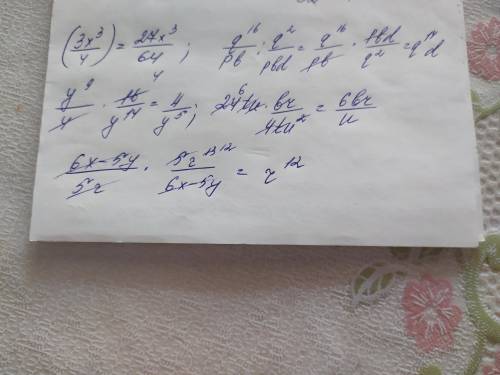 (3x³/4) = 27x³/64 ; q¹⁶/pb : q²/pbd = q¹⁶/pb · pbd/q² = q¹⁴d
y⁹/4 · 16/y¹⁴ = 4/y⁵ ; 24tu · br/4tu² = 6br/u
6x-5y/5z · 5z¹³/6x-5y = z¹²